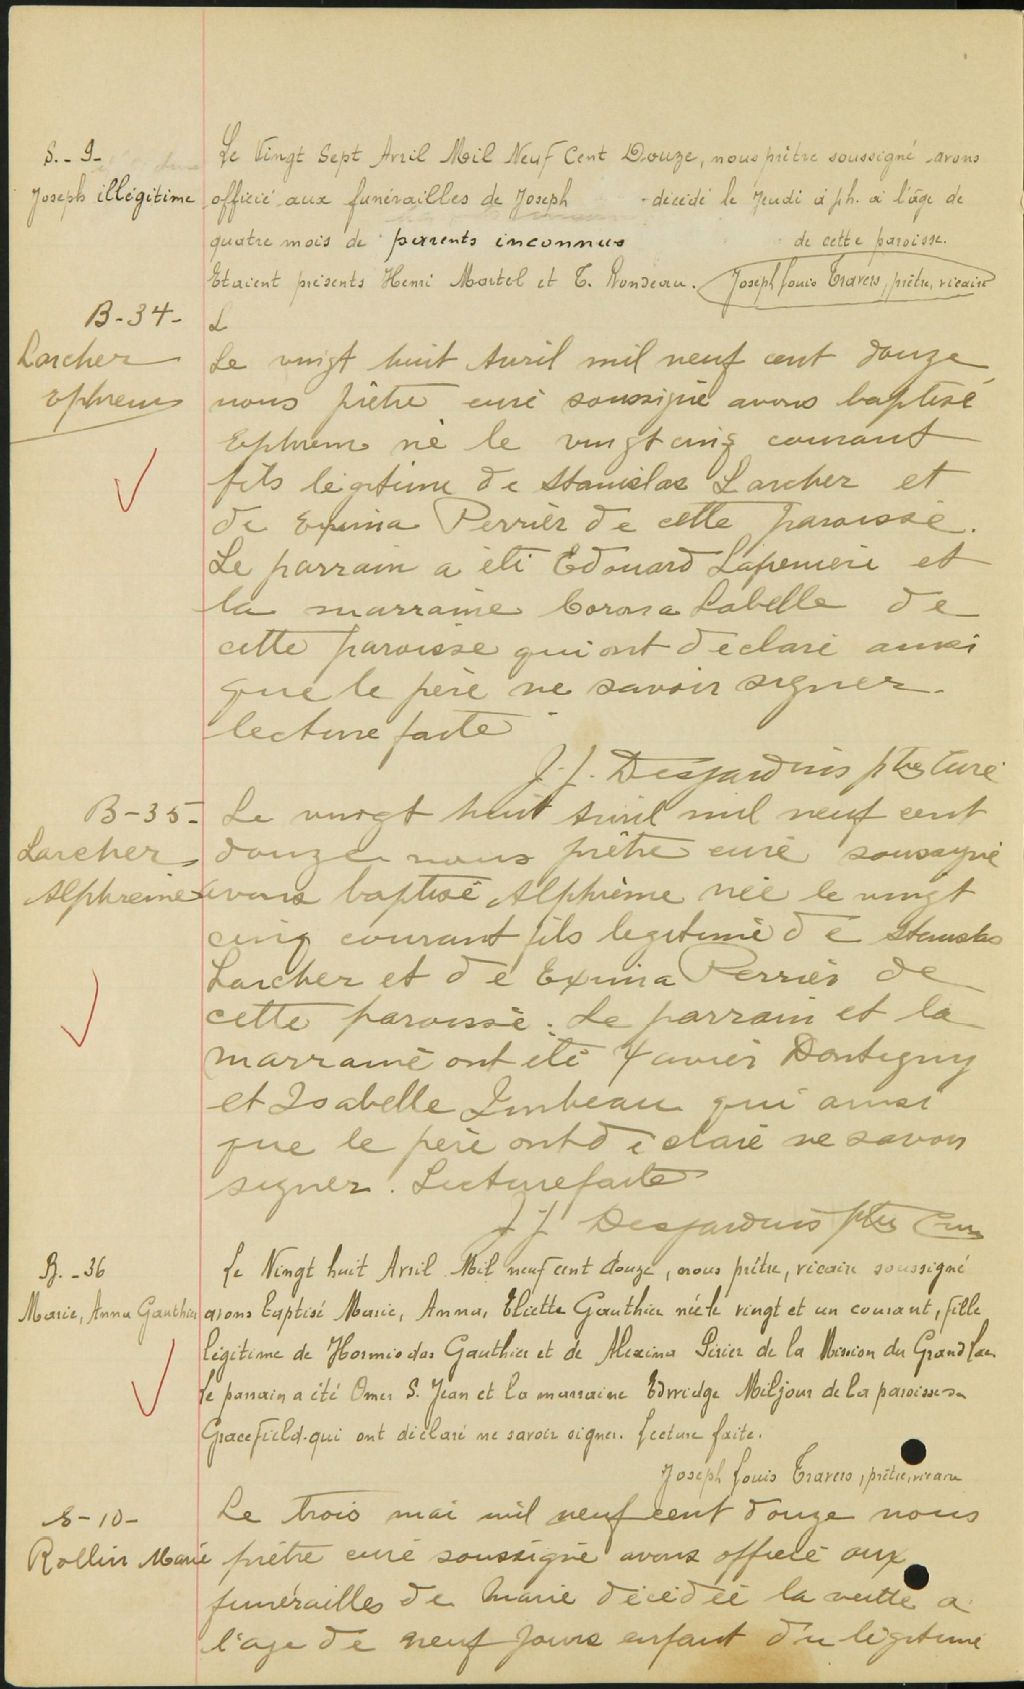 S.-9-
Joseph illégitime
Le Vingt Sept Avril Mil Neuf Cent Douze, nous prêtre soussigné avons
officié aux funérailles de Joseph décédé le Jeudi à l'âge de
quatre mois de parents inconnus de cette paroisse.
Etaient présents Henri Martel et T. Rondeau. Joseph Louis Travers, prêtre, vicaire
B-34-
Larcher
Ephrem
L
Le vingt huit Avril mil neuf cent douze
nous prêtre curé soussigné avons baptisé
Ephrem né le vingt cinq courant
fils légitime de Stanislas Larcher et
de Exina Perrier de cette paroisse.
Le parrain a été Edouard Laperrière et
la marraine Corona Labelle de
cette paroisse qui ont déclaré ainsi
que le père ne savoir signer.
lecture faite
J. J. Desjardins ptre Curé
B-35-
Larcher
Alphreine
Le vingt huit Avril mil neuf cent
douze nous prêtre curé soussigné
avons baptisé Alphrème née le vingt
cinq courant fils légitime de Stanislas
Larcher et de Exina Perrier de
cette paroisse. Le parrain et la
marraine ont été Xavier Dontigny
et Isabelle Imbeau qui ainsi
que le père ont déclaré ne savoir
signer. Lecture faite
J J Desjardins ptre Curé
B.-36
Marie, Anna Gauthier
Le Vingt huit Avril Mil neuf cent douze, nous prêtre, vicaire soussigné
avons baptisé Marie, Anna, Eliette Gauthier née le vingt et un courant, fille
légitime de Hormisdas Gauthier et de Alexina Périer de la Mission du Grand Lac
Le parrain a été Omer S. Jean et la marraine Edwidge Miljour de la paroisse de
Gracefield qui ont déclaré ne savoir signer. Lecture faite.
Joseph Louis Travers, prêtre, vicaire
S-10-
Rollin Marie
Le trois mai mil neuf cent douze nous
prêtre curé soussigné avons officié aux
funérailles de Marie décédée la veille a
l'age de neuf jours enfant du légitime